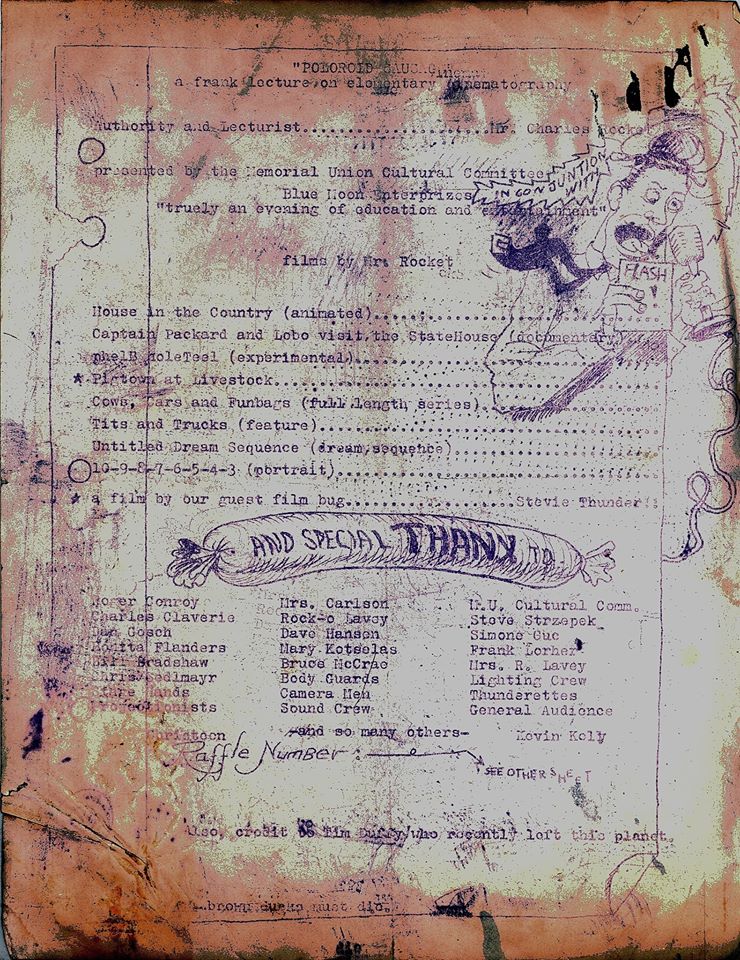 "POLOROID SAUSAGE Cinema
a frank lecture on elementary cinematography
Authority and Lecturist......................Mr. Charles Rocket
presented by the Memorial Union Cultural Committee
IN CONJUNTION WITH
Blue Moon Enterprizes
"truely an evening of education and entertainment"
FLASH!
films by Mr. Rocket
House in the Country (animated)
Captain Packard and Lobo visit the StateHouse (documentary)
phelB holeTeel (experimental)
★ Pigtown at Livestock
Cows, Cars and Funbags (full length series)
Tits and Trucks (feature)
Untitled Dream Sequence (dream sequence)
10-9-8-7-6-5-4-3 (portrait)
★ a film by our guest film bug....................Stevie Thunder!!
AND SPECIAL THANX TO
Roger Conroy Mrs. Carlson M.U. Cultural Comm.
Charles Claverie Rock-o Lavey Steve Strzepek
Dan Gosch Dave Hansen Simone Guc
Monita Flanders Mary Kotselas Frank Lorhez
Bill Bradshaw Bruce McCrae Mrs. R. Lavey
Chris Sedlmayr Body Guards Lighting Crew
Stage Hands Camera Men Thunderettes
Projectionists Sound Crew General Audience
Christoon -and so many others- Kevin Kely
Raffle Number:
SEE OTHER SHEET
Also, credit to Tim Duffy who recently left this planet.
brown ducks must die.